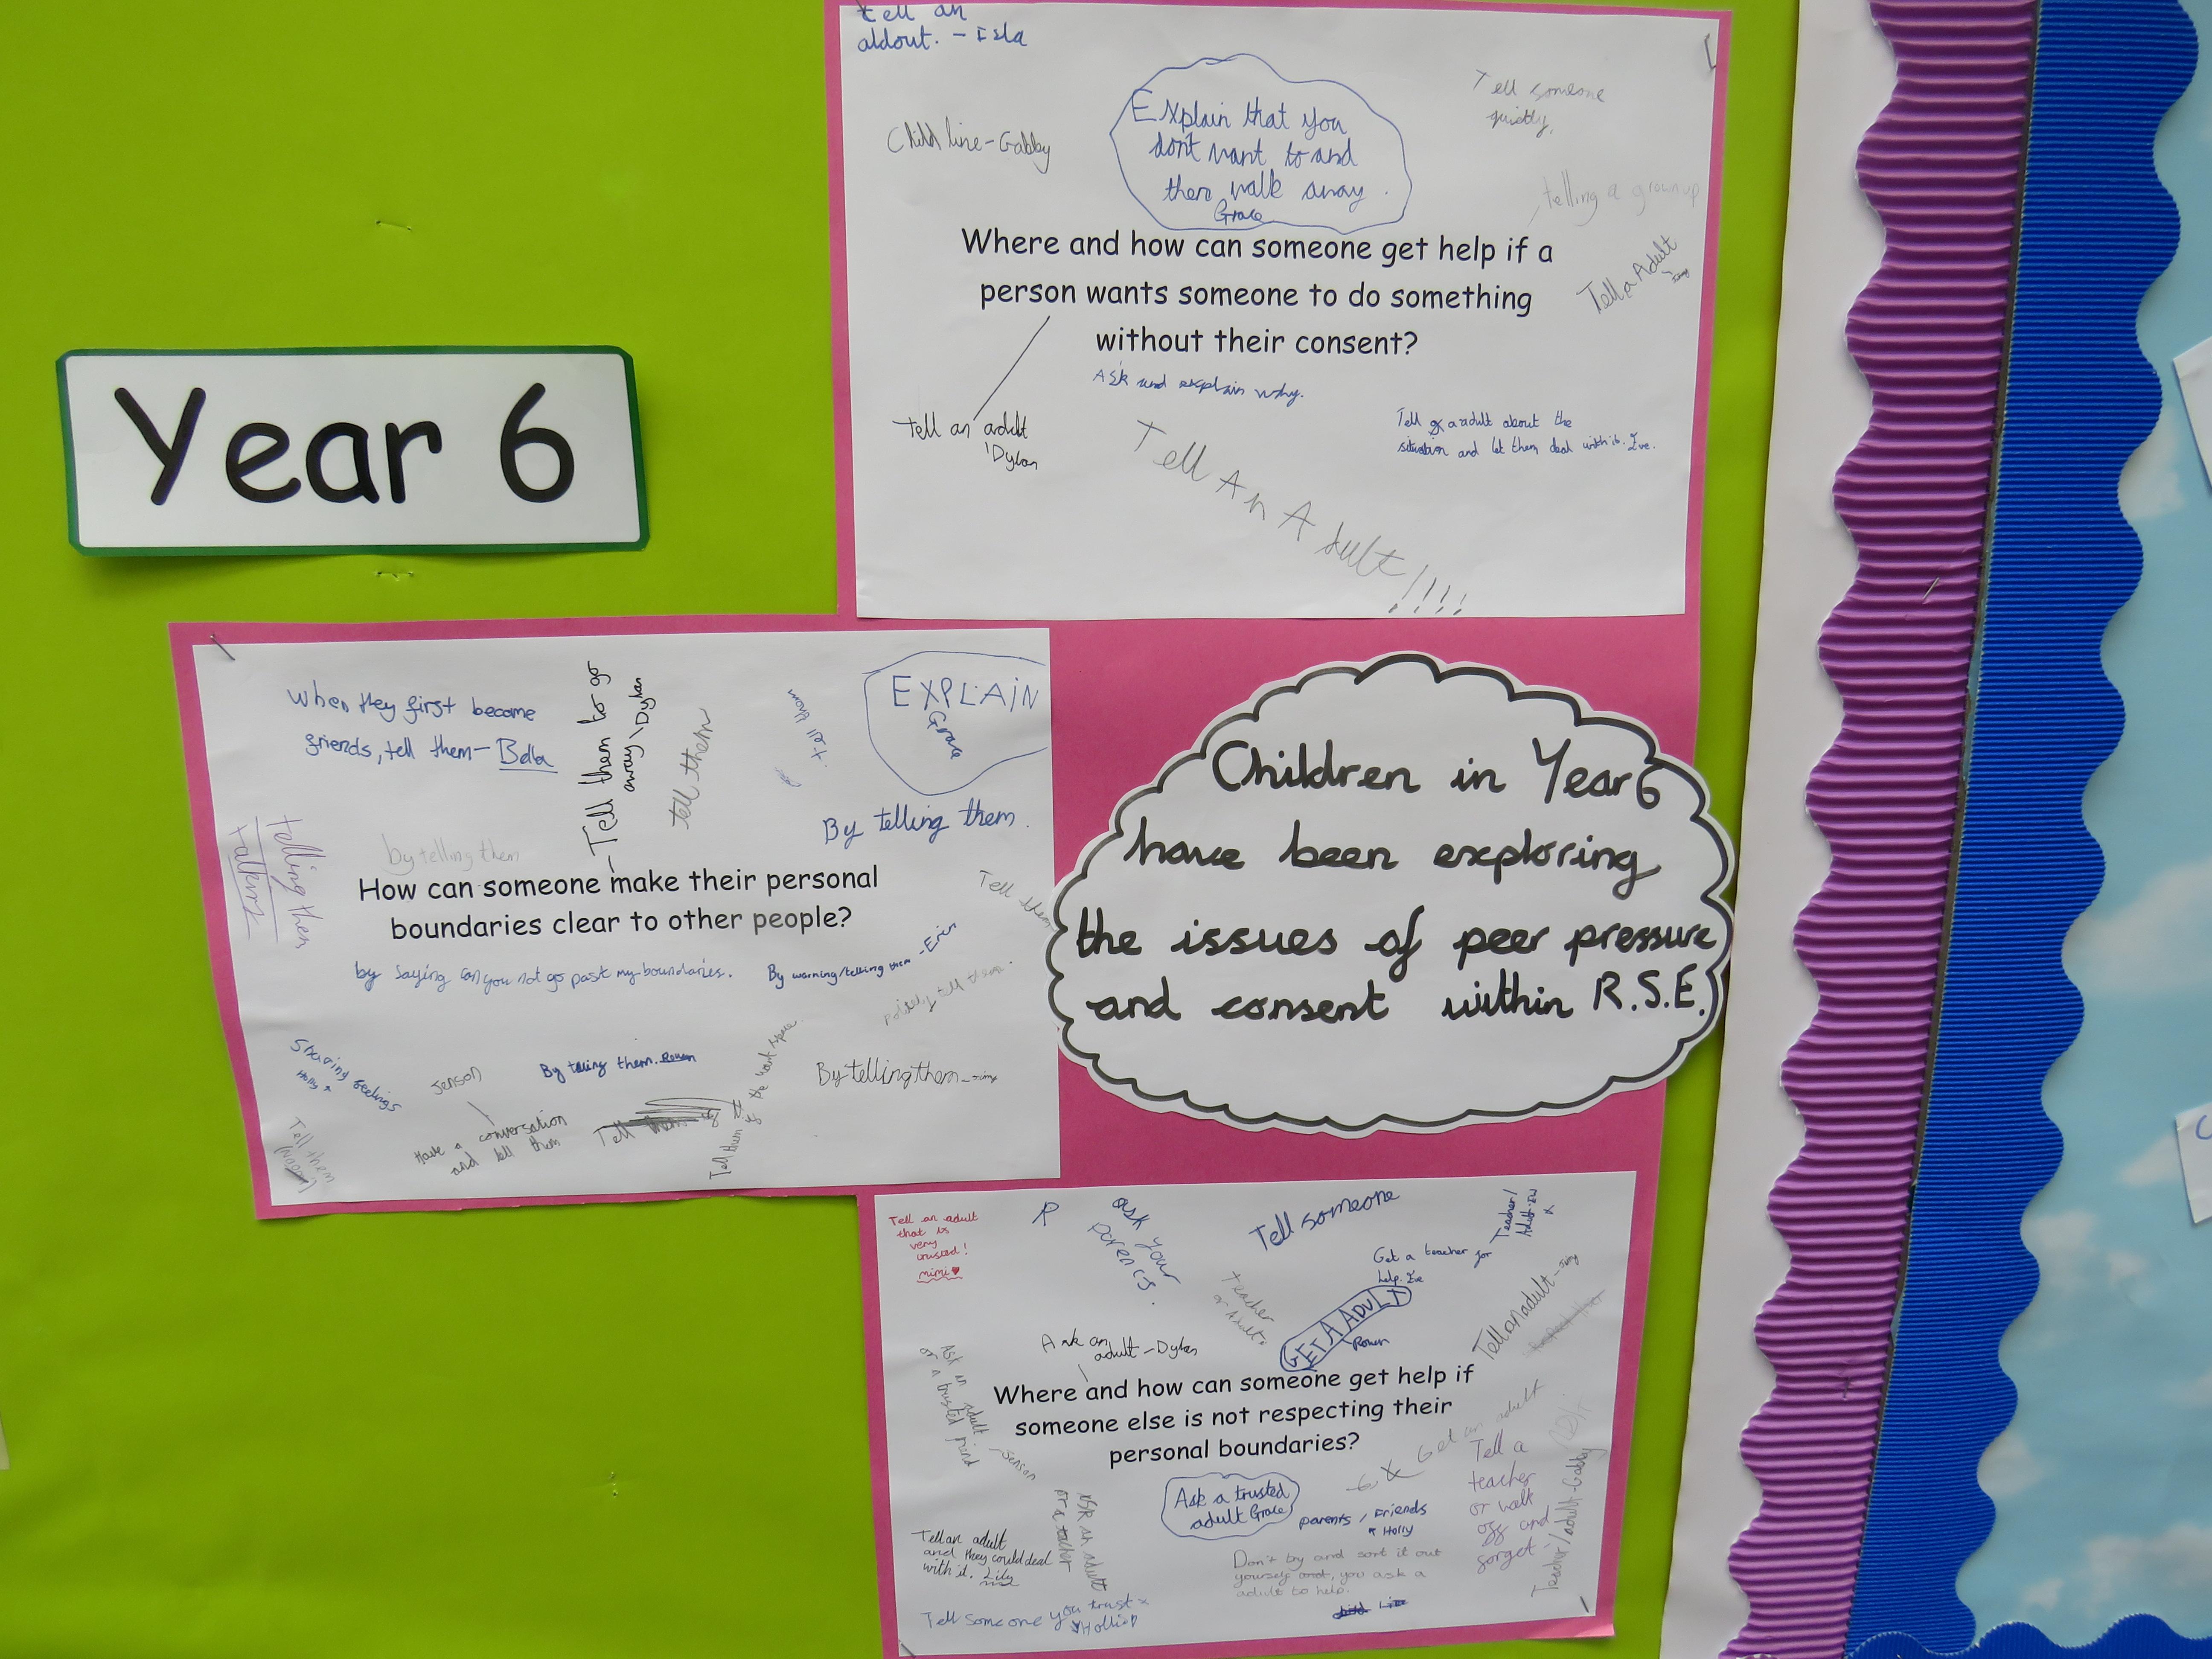 Year 6
tell an
aldout. - Isla
Child line - Gabby
Explain that you
don't want to and
then walk away.
Grace
Tell someone
quietly.
telling a grown up
Tell a Adult
Where and how can someone get help if a
person wants someone to do something
without their consent?
Ask and explain why.
Tell an adult
Dylan
Tell a adult about the
situation and let them deal with it. Eve.
Tell An Adult!!!!
When they first become
friends, tell them - Bella
Tell them to go
away \ Dylan
tell them
tell them
EXPLAIN
Grace
By telling them.
telling them
talking
by telling them
Tell them
How can someone make their personal
boundaries clear to other people?
by saying can you not go past my boundaries.
By warning/telling them - Erin
politely tell them.
Sharing feelings
Holly
Jenson
Have a conversation
and tell them
By telling them. Rowan
Tell them if
Tell them if the want space
By telling them -
Tell them
Children in Year 6
have been exploring
the issues of peer pressure
and consent within R.S.E.
Tell an adult
that is
very
trusted!
mimi
R
ask your
parents.
Tell someone
Teacher/
Adult
Get a teacher for
help. Eve
teacher
or Adult
GET A ADULT
Rowan
Tell an adult -
Ask an
adult - Dylan
Ask an adult
or a trusted friend
Jenson
Where and how can someone get help if
someone else is not respecting their
personal boundaries?
Get an adult
Ask a trusted
adult Grace
parents / Friends
Holly
Tell a
teacher
or walk
off and
forget
Teacher/adult - Gabby
Tell an adult
and they could deal
with it. Lily
ASK an adult
or a teacher
Don't try and sort it out
yourself and, you ask a
adult to help.
Tell someone you trust x
Hollie